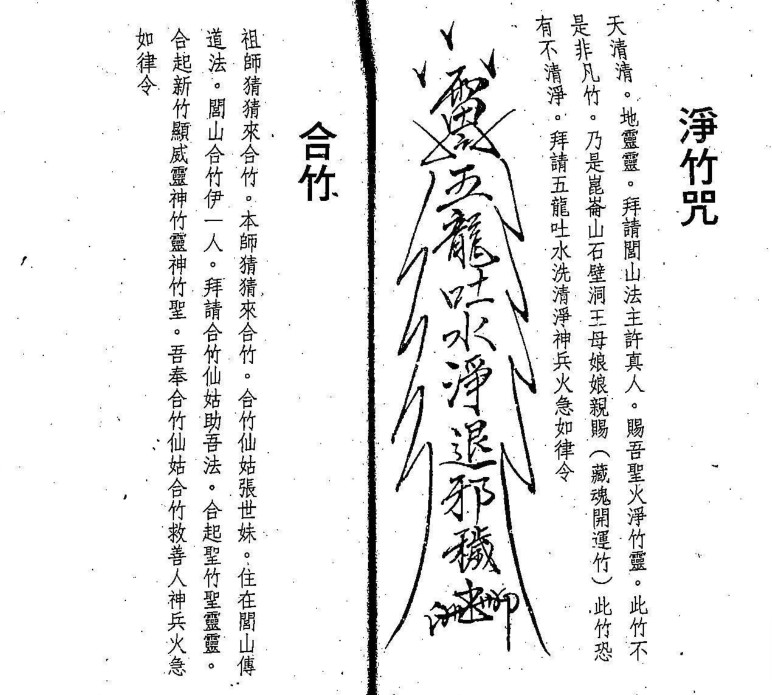 淨竹咒
天清清。地靈靈。拜請閭山法主許真人。賜吾聖火淨竹靈。此竹不
是非凡竹。乃是崑崙山石壁洞王母娘娘親賜（藏魂開運竹）此竹恐
有不清淨。拜請五龍吐水洗清淨神兵火急如律令
五龍吐水淨退邪穢
合竹
祖師猜猜來合竹。本師猜猜來合竹。合竹仙姑張世妹。住在閭山傳
道法。閭山合竹伊一人。拜請合竹仙姑助吾法。合起聖竹聖靈靈。
合起新竹顯威靈神竹靈神竹聖。吾奉合竹仙姑合竹救善人神兵火急
如律令